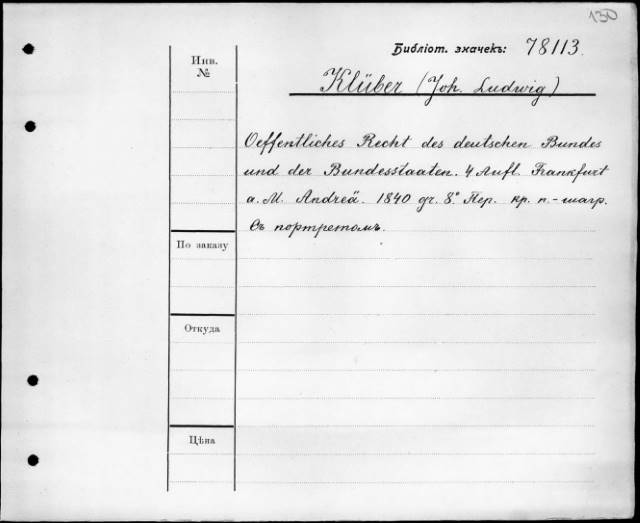 130
Библіот. значекъ: 78113.
Инв.
№
Klüber (Joh. Ludwig)
Oeffentliches Recht des deutschen Bundes
und der Bundesstaaten. 4 Aufl. Frankfurt
a. M. Andreä. 1840 gr. 8.° Пер. кр. п.-шагр.
Съ портретомъ.
По заказу
Откуда
Цѣна